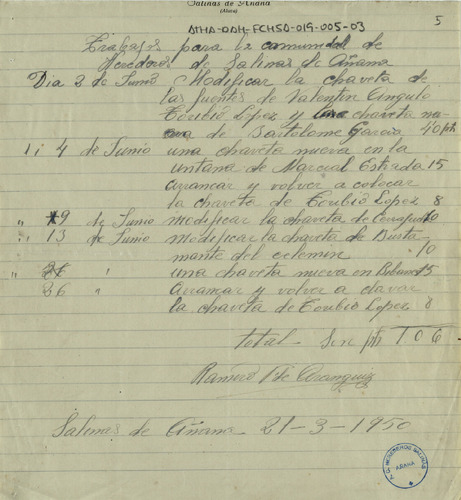 Salinas de Añana
(Alava)
ATHA-DAH-FCHSA-019-005-03
5
Trabajos para la comunidad de
Heredoros de Salinas de Añana
Dia 2 de Junio Modificar la chaveta de
las fuentes de Valentin Angulo
Toribio Lopez y una chaveta nu
eva de Bartolome Garcia 40 pts
1 i 4 de Junio una chaveta nueva en la
untana de Marcial Estrada 15
arrancar y volver a colocar
la chaveta de Toribio Lopez 8
" 9 de Junio modificar la chaveta de 10
" 13 de Junio modificar la chaveta de Busta
mante del celemin 10
" " una chaveta nueva en 15
26 " Arrancar y volver a clavar
la chaveta de Toribio Lopez 8
Total - Son pts 106
Ramiro de Aranguiz
Salinas de Añana 21-3-1950
HEREDEROS SALINAS
AÑANA